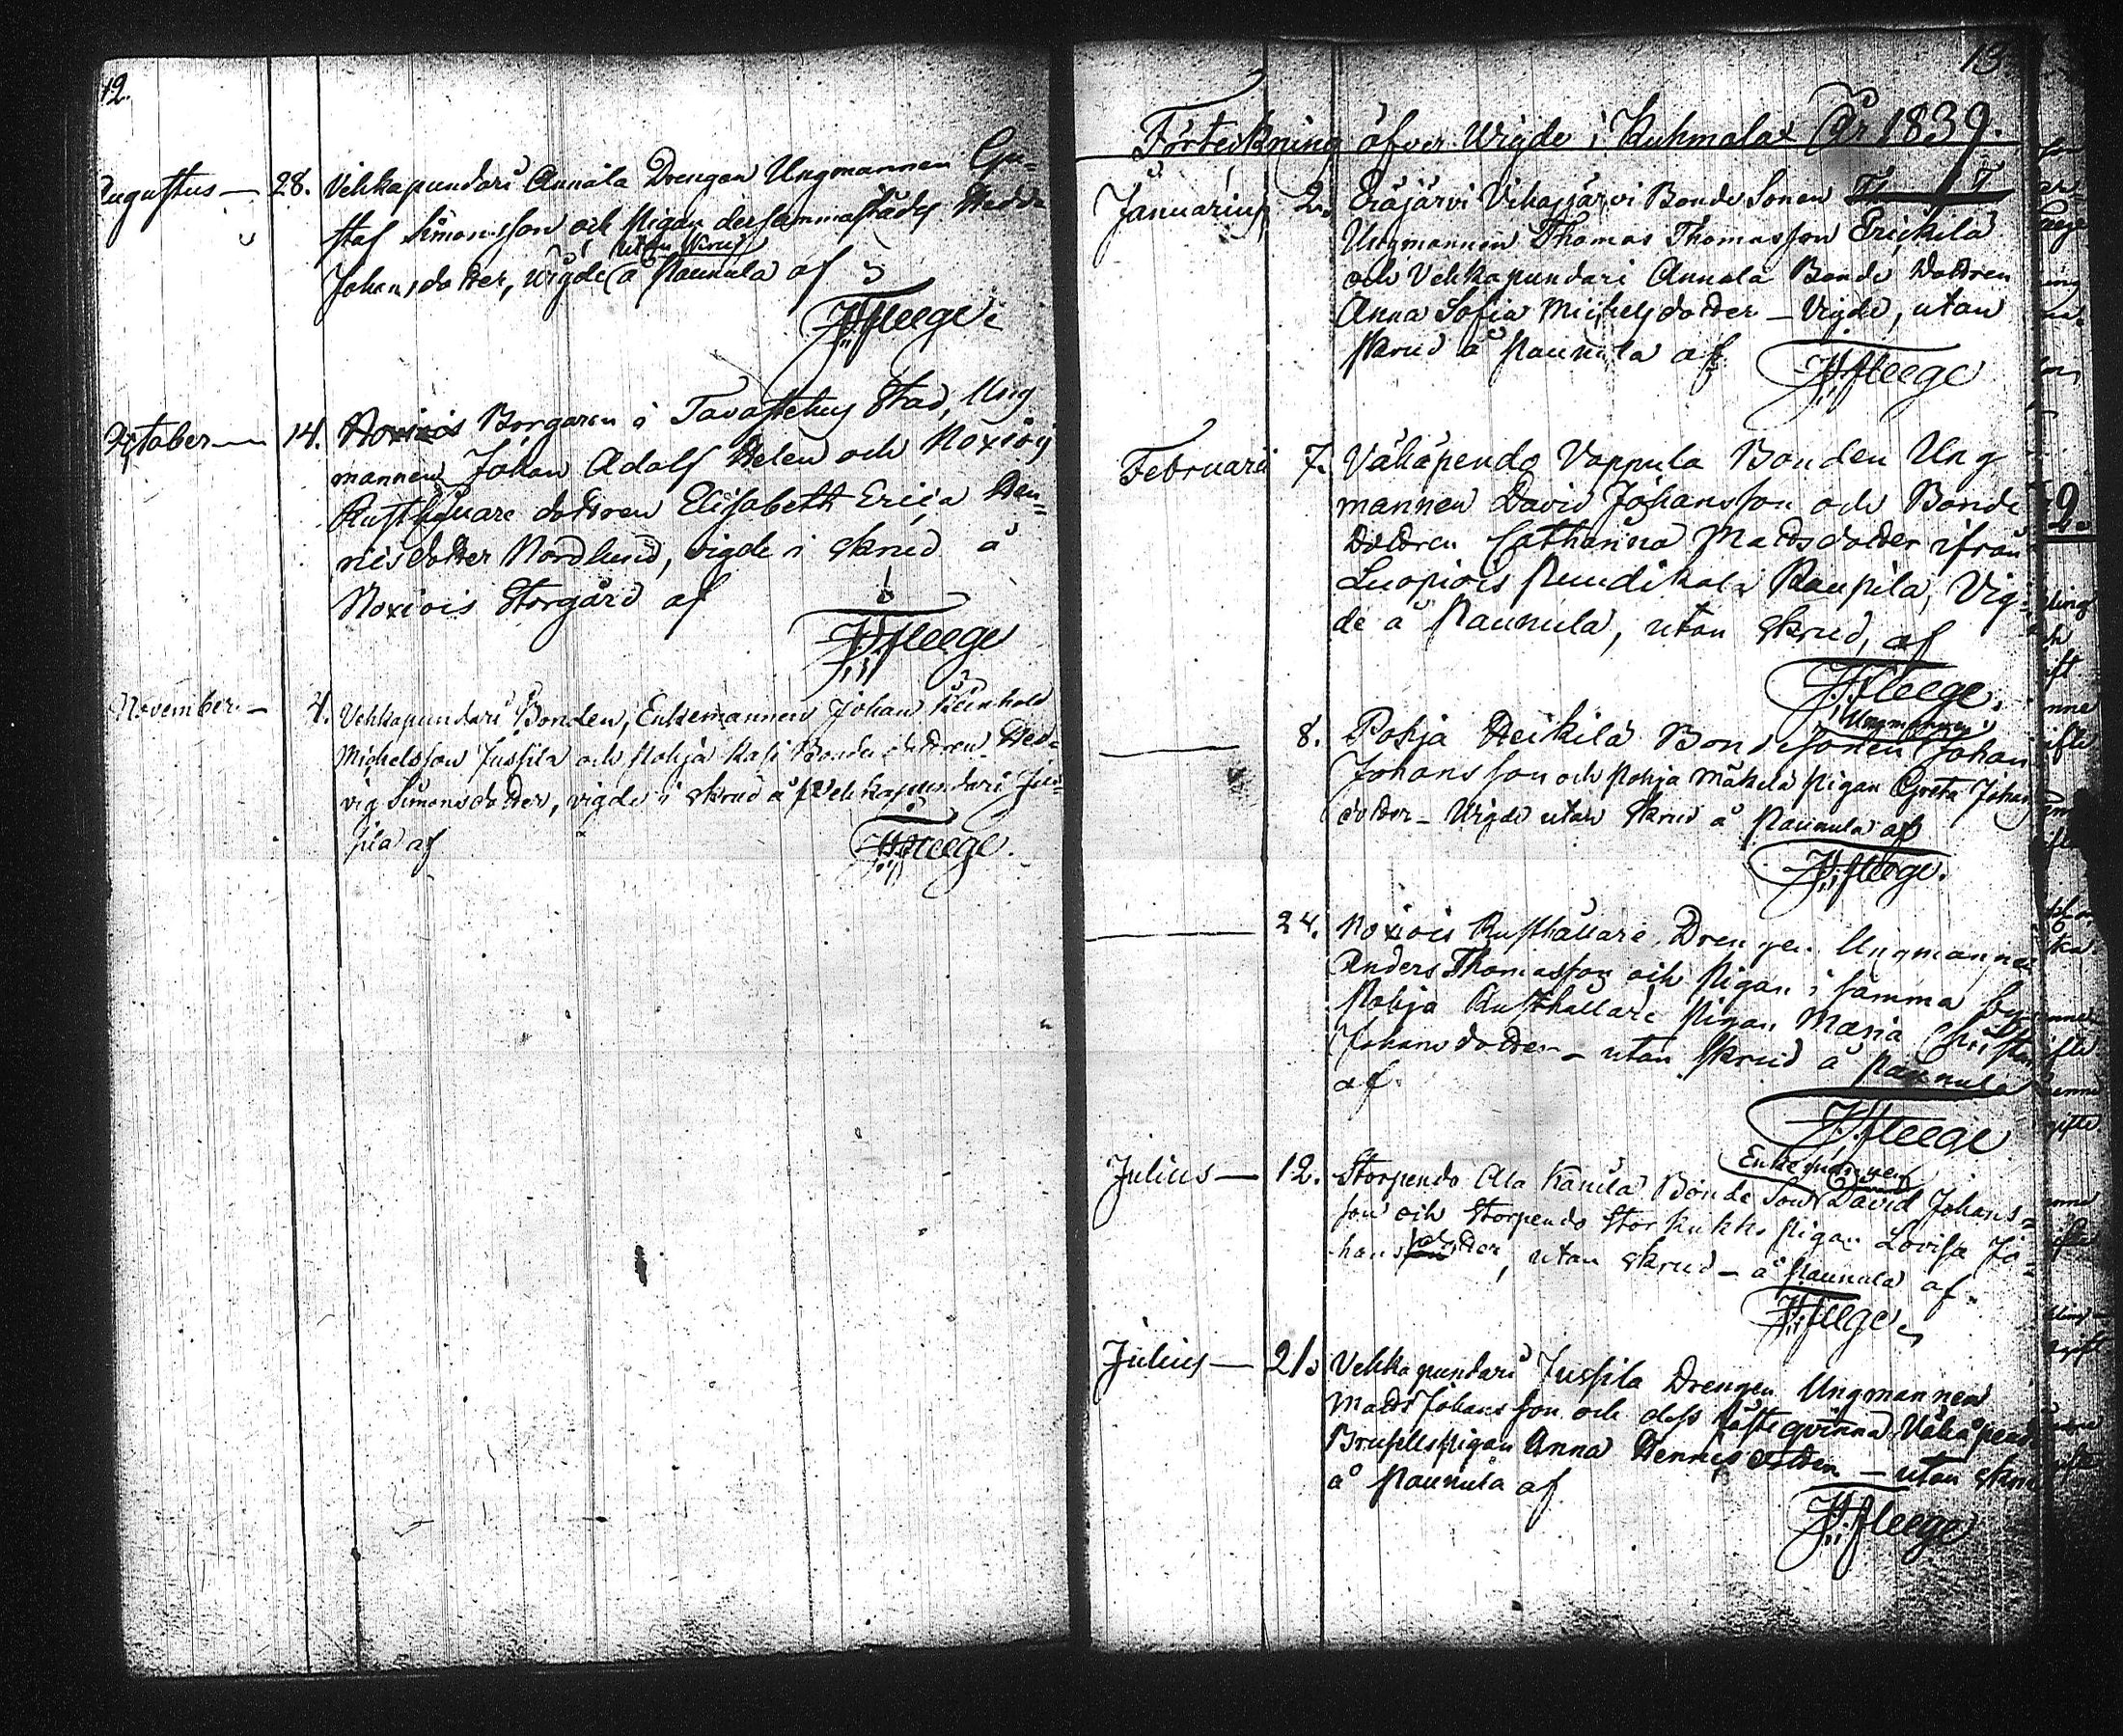 12.
Augustus — 28. Vehkapundari Annala Drengen Ungmannen Gu=
staf Simonsson och Pigan dersammastädes Hedda
utan skrud
Johansdotter, wigde å Paunula af
JHfleege
October — 14. Borgaren i Tavastehus Stad, Ung
mannen Johan Adolf Helen och Noxiois
Rusthållare dottren Elisabeth Erica Hen=
ricsdotter Nordlund, vigde i skrud å
Noxiois Storgård af
JHfleege
November — 4. Vehkapundari Bonden, Enkemannen Johan Reinhold
Michelsson Jussila och Pohja Kasi Bonde dottren Hed=
vig Simonsdotter, vigde i skrud å Vehkapundari Jus=
sila af
JHfleege.
13
Förteckning öfver Wigde i Kuhmalax År 1839.
Januarius 2. Eräjärvi Vihasjärvi Bonde Sonen
Ungmannen Thomas Thomasson Erickilä
och Vehkapundari Annala Bonde Dottren
Anna Sofia Michelsdotter — Vigde, utan
skrud å Paunula af
JHfleege
Februarii 7. Vähäpendo Vappula Bonden Ung
mannen David Johansson och Bonde
Dottren Catharina Mattsdotter ifrån
Luopiois Puudikala Kaupila, Vig=
de å Paunula, utan skrud, af
JHfleege.
Ungmannen
— 8. Pohja Heikilä Bondesonen Johan
Johansson och Pohja Mäkelä Pigan Greta Johans
dotter — Wigde utan skrud å Paunula af
JHfleege.
— 24. Noxiois Rusthållare Drengen Ungmannen
Anders Thomasson och Pigan i samma by
Pohja Rusthållare Pigan Maria Christina
Johansdotter — utan skrud å Paunula
af
JHfleege
Enkemannen
Julius — 12. Storpendo Ala Kauila Bonde Son David Johans=
son och Storpendo Stor Kukko Pigan Lovisa Jo=
hansdotter, utan skrud — å Paunula af
JHfleege
Julius — 21. Vehkapundari Jussila Drengen Ungmannen
Matts Johansson och dess fästeqvinna Vähäpendo
Brusells pigan Anna Henricsdotter — utan skrud
å Paunula af
JHfleege